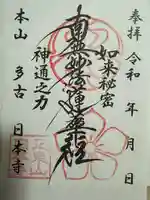 奉拝 令和 年 月 日
如来秘密
南無妙法蓮華経
神通之力
本山 多古 日本寺